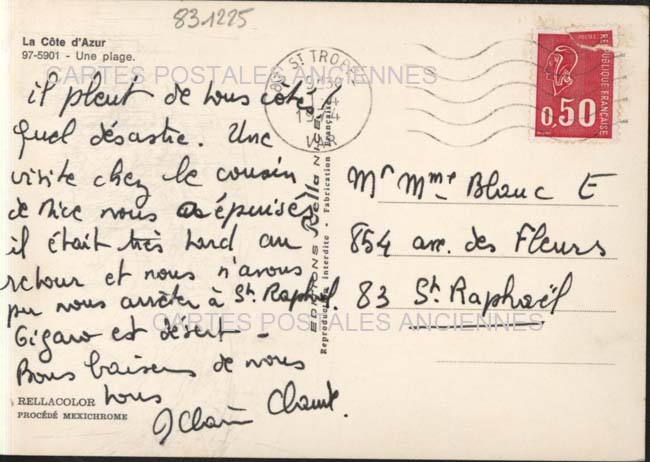 831225
La Côte d'Azur
97-5901 - Une plage.
CARTES POSTALES ANCIENNES
il pleut de tous côtés
quel désastre. Une
visite chez le cousin
de Nice nous a épuisés
il était très tard au
retour et nous n'avons
pu nous arrêter à St. Raphaël.
Gigaro est désert -
Bons baisers de nous
tous
Claude.
RELLACOLOR
PROCÉDÉ MEXICHROME
EDITIONS Rella NICE
Reproduction Interdite - Fabrication Française
ST TROPEZ
VAR
POSTES
REPUBLIQUE FRANÇAISE
0,50
Mr Mme Blanc E
854 av. des Fleurs
83 St. Raphaël
CARTES POSTALES ANCIENNES